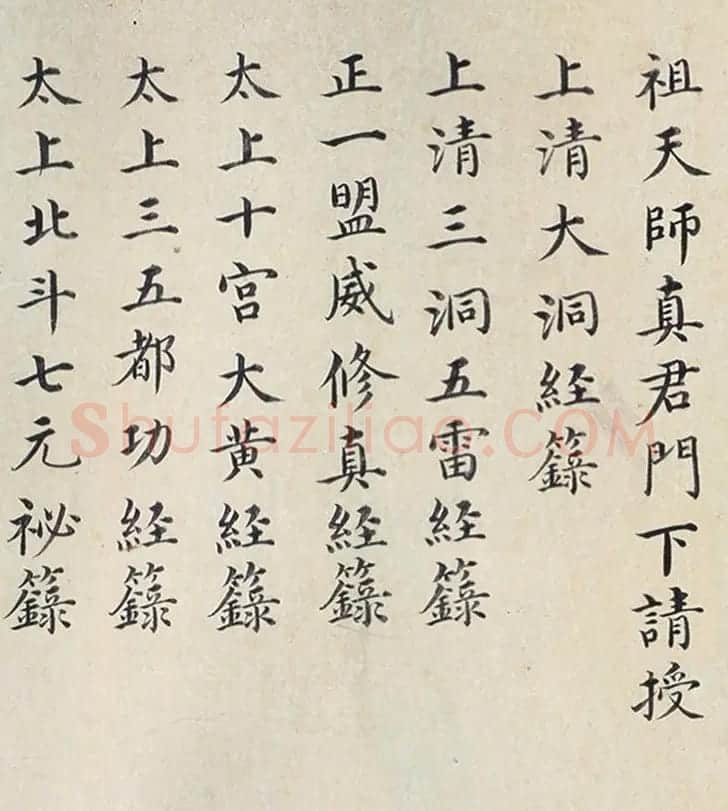 祖天師真君門下請授
上清大洞経籙
上清三洞五雷経籙
正一盟威修真経籙
太上十宮大黄経籙
太上三五都功経籙
太上北斗七元祕籙
Shufaziliao.COM